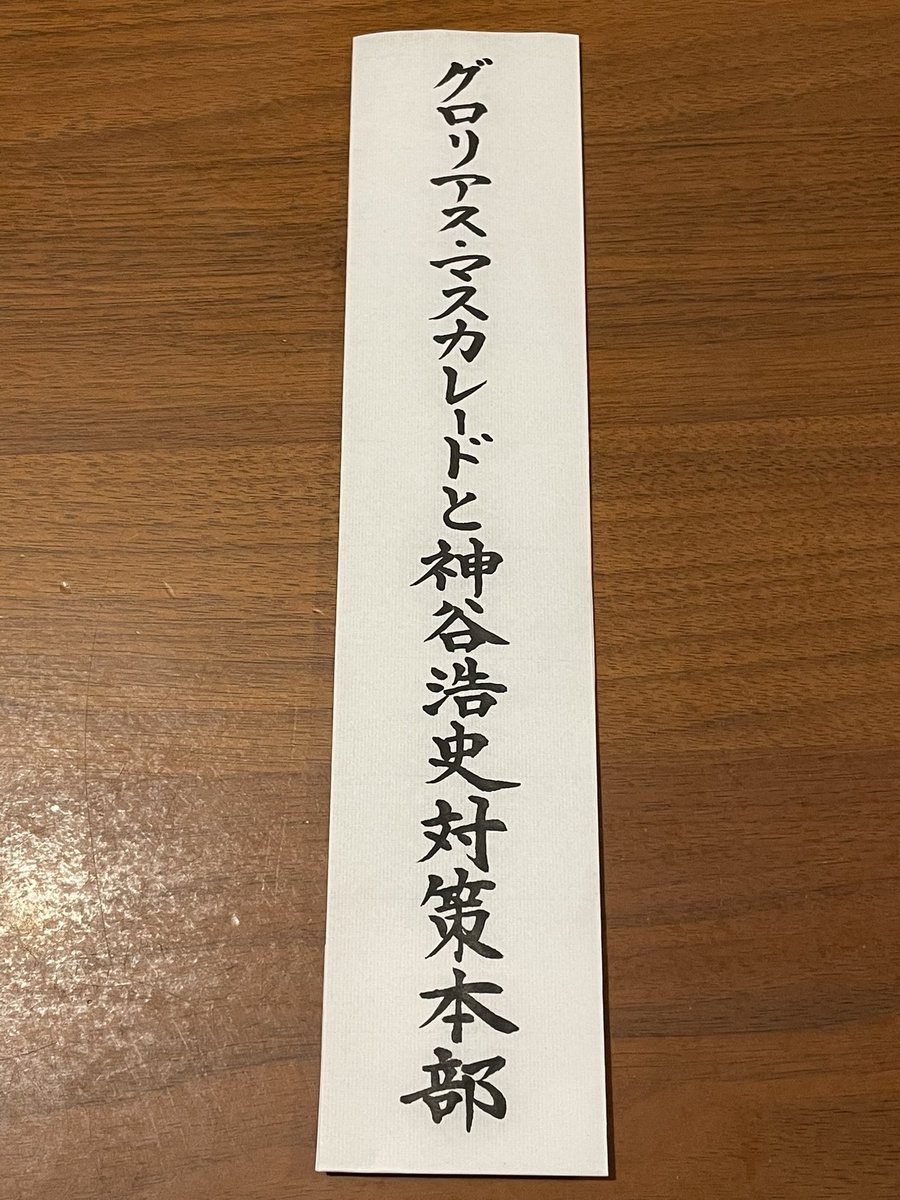 グロリアス・マスカレードと神谷浩史対策本部